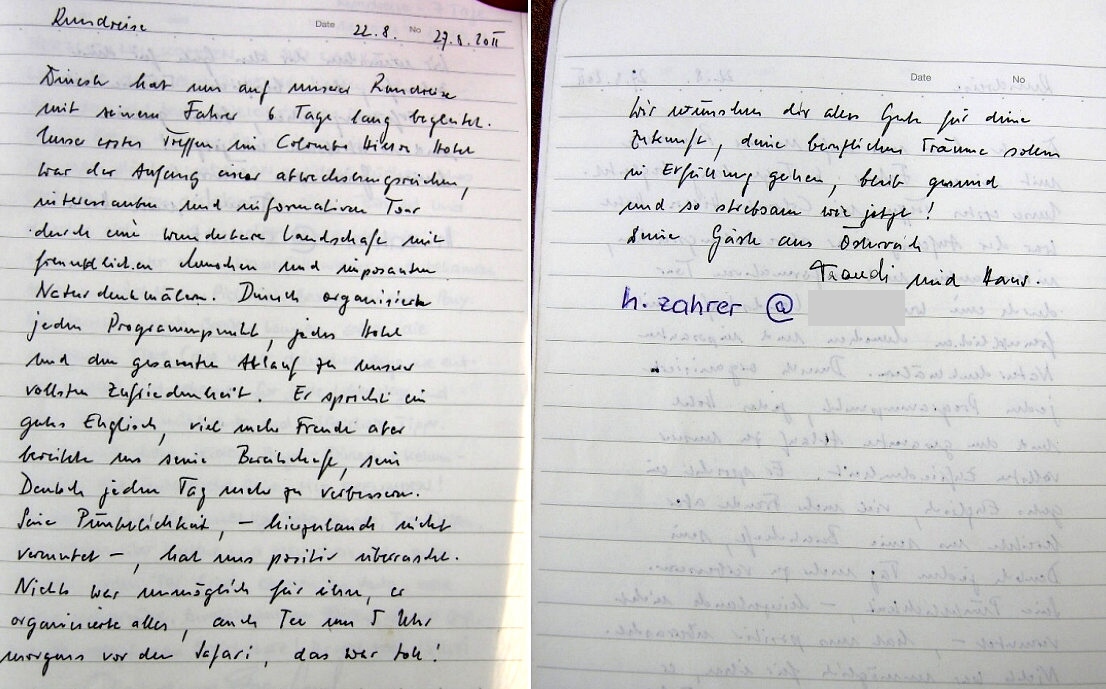 Rundreise Date 22.8. No 27.8.2011
Dinesh hat uns auf unserer Rundreise
mit seinem Fahrer 6 Tage lang begleitet.
Unser erstes Treffen im Colombo Hilton Hotel
war der Anfang einer abwechslungsreichen,
interessanten und informativen Tour
durch eine wunderbare Landschaft mit
freundlichen Menschen und imposanten
Naturdenkmälern. Dinesh organisierte
jeden Programmpunkt, jedes Hotel
und den gesamten Ablauf zu unserer
vollsten Zufriedenheit. Er spricht ein
gutes Englisch, viel mehr Freude aber
bereitete uns seine Bereitschaft, sein
Deutsch jeden Tag mehr zu verbessern.
Seine Pünktlichkeit, – hierzulande nicht
vermutet –, hat uns positiv überrascht.
Nichts war unmöglich für ihn, er
organisierte alles, auch Tee um 5 Uhr
morgens vor der Safari, das war toll!
Date No
Wir wünschen dir alles Gute für deine
Zukunft, deine beruflichen Träume sollen
in Erfüllung gehen, bleib gesund
und so strebsam wie jetzt!
Deine Gäste aus Österreich
Traudi und Hans
h.zahrer @